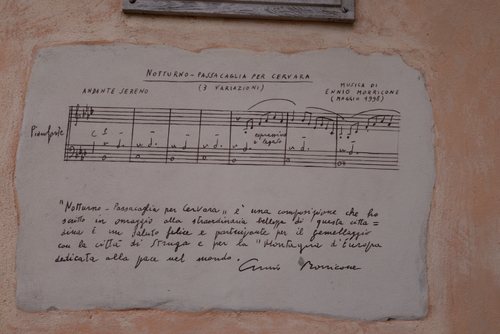 NOTTURNO - PASSACAGLIA PER CERVARA
(3 VARIAZIONI)
ANDANTE SERENO
MUSICA DI
ENNIO MORRICONE
(MAGGIO 1998)
Pianoforte
espressivo
e legato
"Notturno - Passacaglia per Cervara" è una composizione che ho
scritto in omaggio alla straordinaria bellezza di questa citta=
dina È un saluto felice e partecipante per il gemellaggio
con la città di Struga e per la "Montagna d'Europa
dedicata alla pace nel mondo.
Ennio Morricone